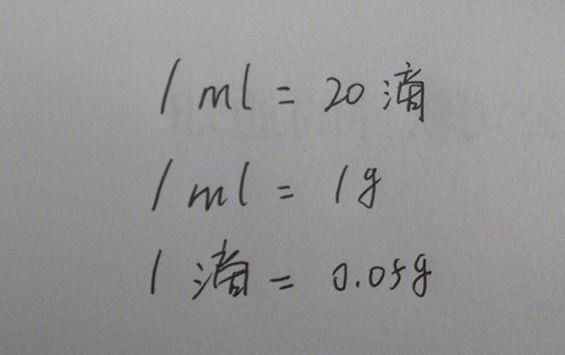 1 ml = 20 滴
1 ml = 1g
1 滴 = 0.05g